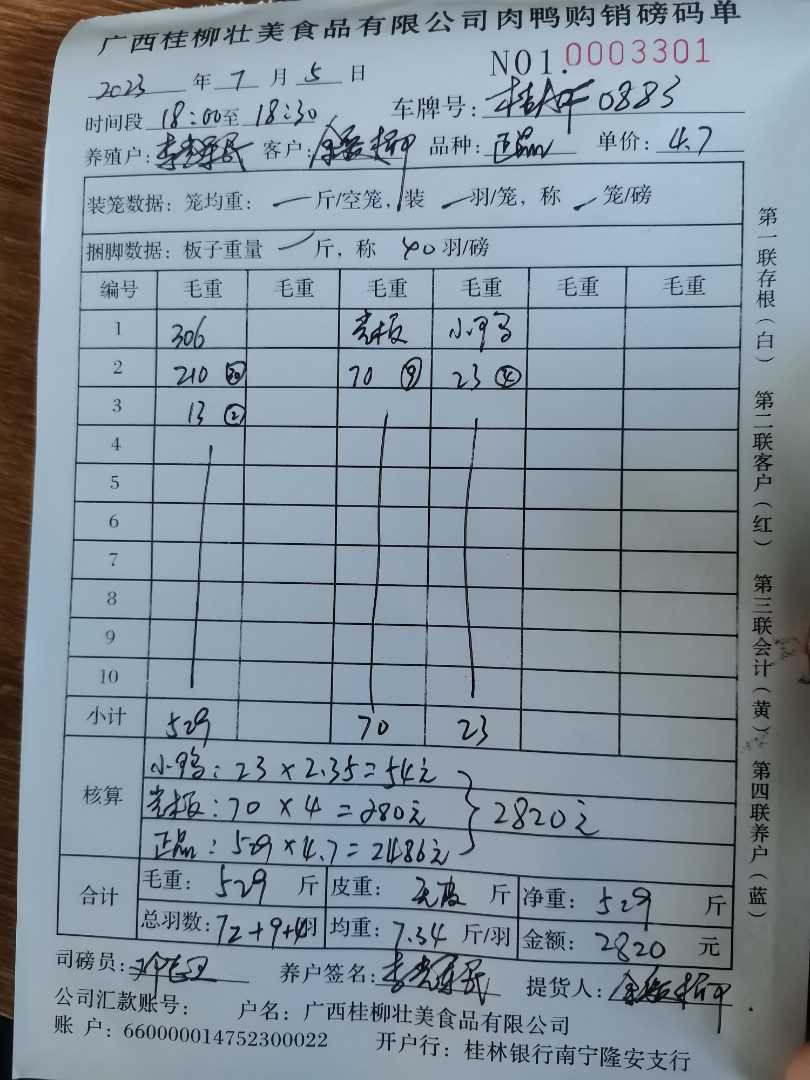 广西桂柳壮美食品有限公司肉鸭购销磅码单
NO1.0003301
2023 年 7 月 5 日
时间段 18:00至 18:30 车牌号: 0883
养殖户: 客户: 品种: 正品 单价: 4.7
装笼数据: 笼均重: 一 斤/空笼, 装 一 羽/笼, 称 一 笼/磅
捆脚数据: 板子重量 一 斤, 称 40 羽/磅
编号 毛重 毛重 毛重 毛重 毛重 毛重
1 306 光板 小鸭
2 210 ㉚ 70 ⑨ 23 ④
3 13 ②
4
5
6
7
8
9
10
小计 529 70 23
核算
小鸭: 23 × 2.35 = 54元
光板: 70 × 4 = 280元
正品: 529 × 4.7 = 2486元
2820元
合计
毛重: 529 斤 皮重: 无皮 斤 净重: 529 斤
总羽数: 72+9+4羽 均重: 7.34 斤/羽 金额: 2820 元
司磅员: 养户签名: 提货人:
公司汇款账号: 户名: 广西桂柳壮美食品有限公司
账 户: 660000014752300022 开户行: 桂林银行南宁隆安支行
第一联存根(白) 第二联客户(红) 第三联会计(黄) 第四联养户(蓝)